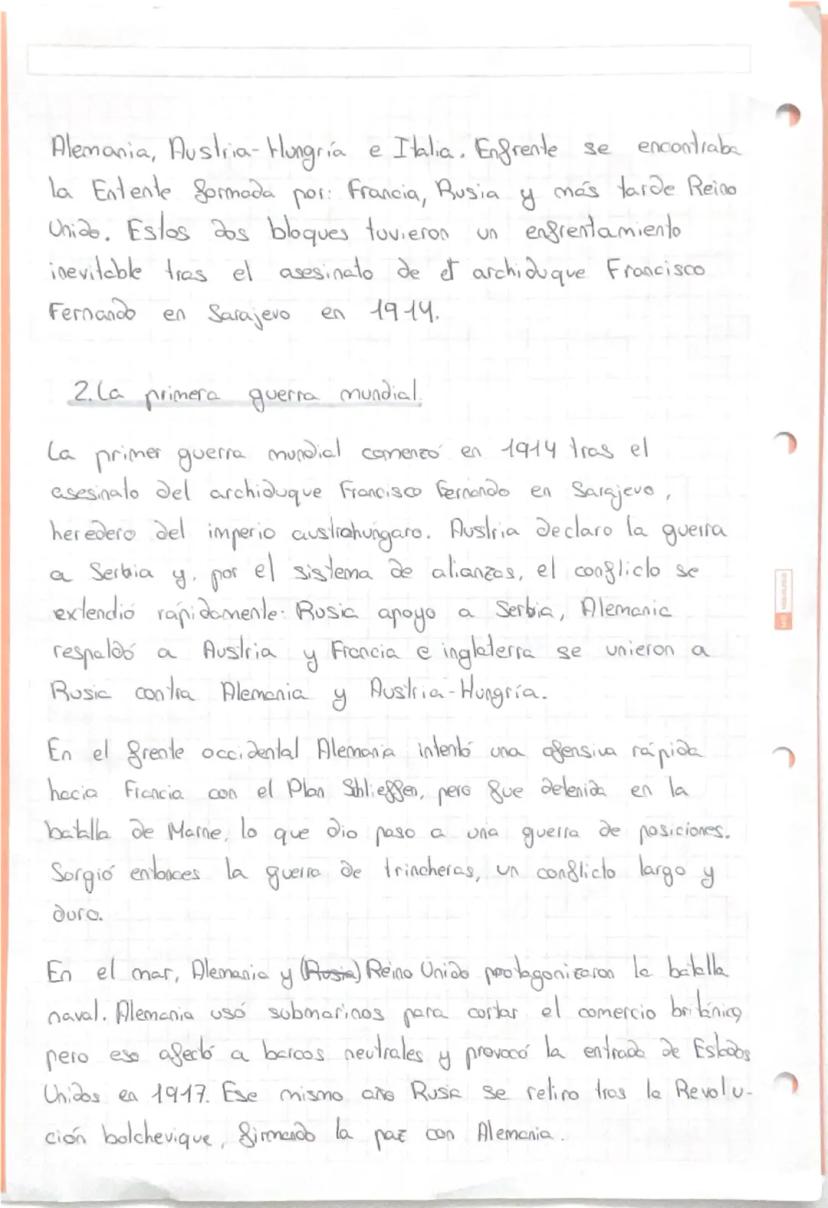 Alemania, Austria-Hungría e Italia. Enfrente se encontraba
la Entente formada por: Francia, Rusia y más tarde Reino
Unido. Estos dos bloques tuvieron un enfrentamiento
inevitable tras el asesinato de el archiduque Francisco
Fernando en Sarajevo en 1914.
2. La primera guerra mundial.
La primer guerra mundial comenzó en 1914 tras el
asesinato del archiduque Francisco Fernando en Sarajevo,
heredero del imperio austrohúngaro. Austria declaro la guerra
a Serbia y, por el sistema de alianzas, el conflicto se
extendió rápidamente: Rusia apoyo a Serbia, Alemania
respaldó a Austria y Francia e inglaterra se unieron a
Rusia contra Alemania y Austria-Hungría.
En el frente occidental Alemania intentó una ofensiva rápida
hacia Francia con el Plan Schlieffen, pero fue detenida en la
batalla de Marne, lo que dio paso a una guerra de posiciones.
Sorgió entonces la guerra de trincheras, un conflicto largo y
duro.
En el mar, Alemania y (Rusia) Reino Unido protagonizaron la batalla
naval. Alemania usó submarinos para cortar el comercio británico,
pero eso afectó a barcos neutrales y provocó la entrada de Estados
Unidos en 1917. Ese mismo año Rusia se retiro tras la Revolu-
ción bolchevique, firmando la paz con Alemania.